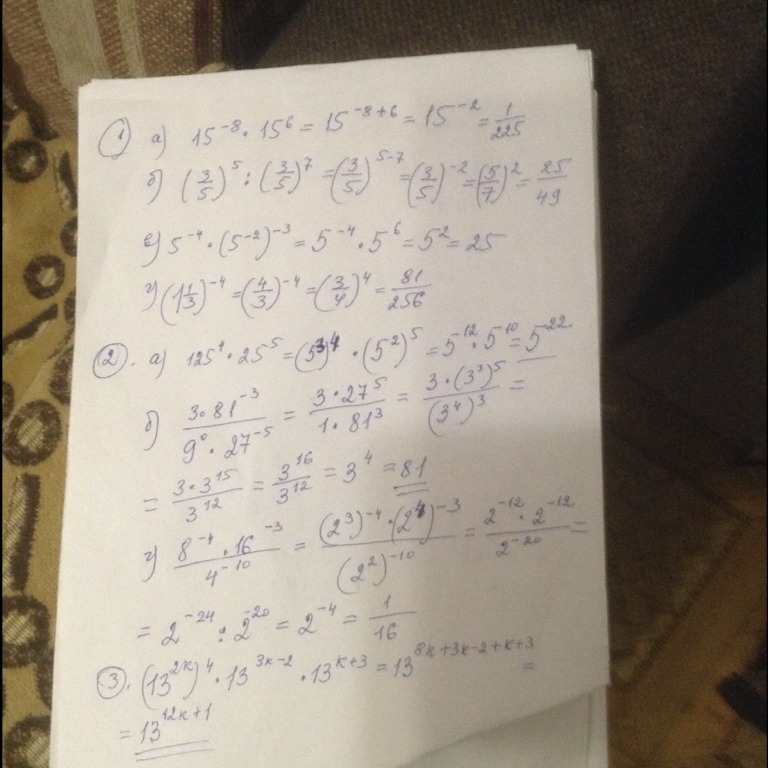 ① а) 15⁻⁸ · 15⁶ = 15⁻⁸⁺⁶ = 15⁻² = 1/225
б) (3/5)⁵ : (3/5)⁷ = (3/5)⁵⁻⁷ = (3/5)⁻² = (5/7)² = 25/49
в) 5⁻⁴ · (5⁻²)⁻³ = 5⁻⁴ · 5⁶ = 5² = 25
г) (1 1/3)⁻⁴ = (4/3)⁻⁴ = (3/4)⁴ = 81/256
②. а) 125⁴ · 25⁵ = (5³)⁴ · (5²)⁵ = 5¹² · 5¹⁰ = 5²²
б) (3 · 81⁻³)/(9⁰ · 27⁻⁵) = (3 · 27⁵)/(1 · 81³) = (3 · (3³)⁵)/((3⁴)³) =
= (3 · 3¹⁵)/(3¹²) = 3¹⁶/3¹² = 3⁴ = 81
г) (8⁻⁴ · 16⁻³)/(4⁻¹⁰) = ((2³)⁻⁴ · (2⁴)⁻³)/((2²)⁻¹⁰) = (2⁻¹² · 2⁻¹²)/(2⁻²⁰) =
= 2⁻²⁴ : 2⁻²⁰ = 2⁻⁴ = 1/16
③. (13²ᵏ)⁴ · 13³ᵏ⁻² · 13ᵏ⁺³ = 13⁸ᵏ⁺³ᵏ⁻²⁺ᵏ⁺³ =
= 13¹²ᵏ⁺¹